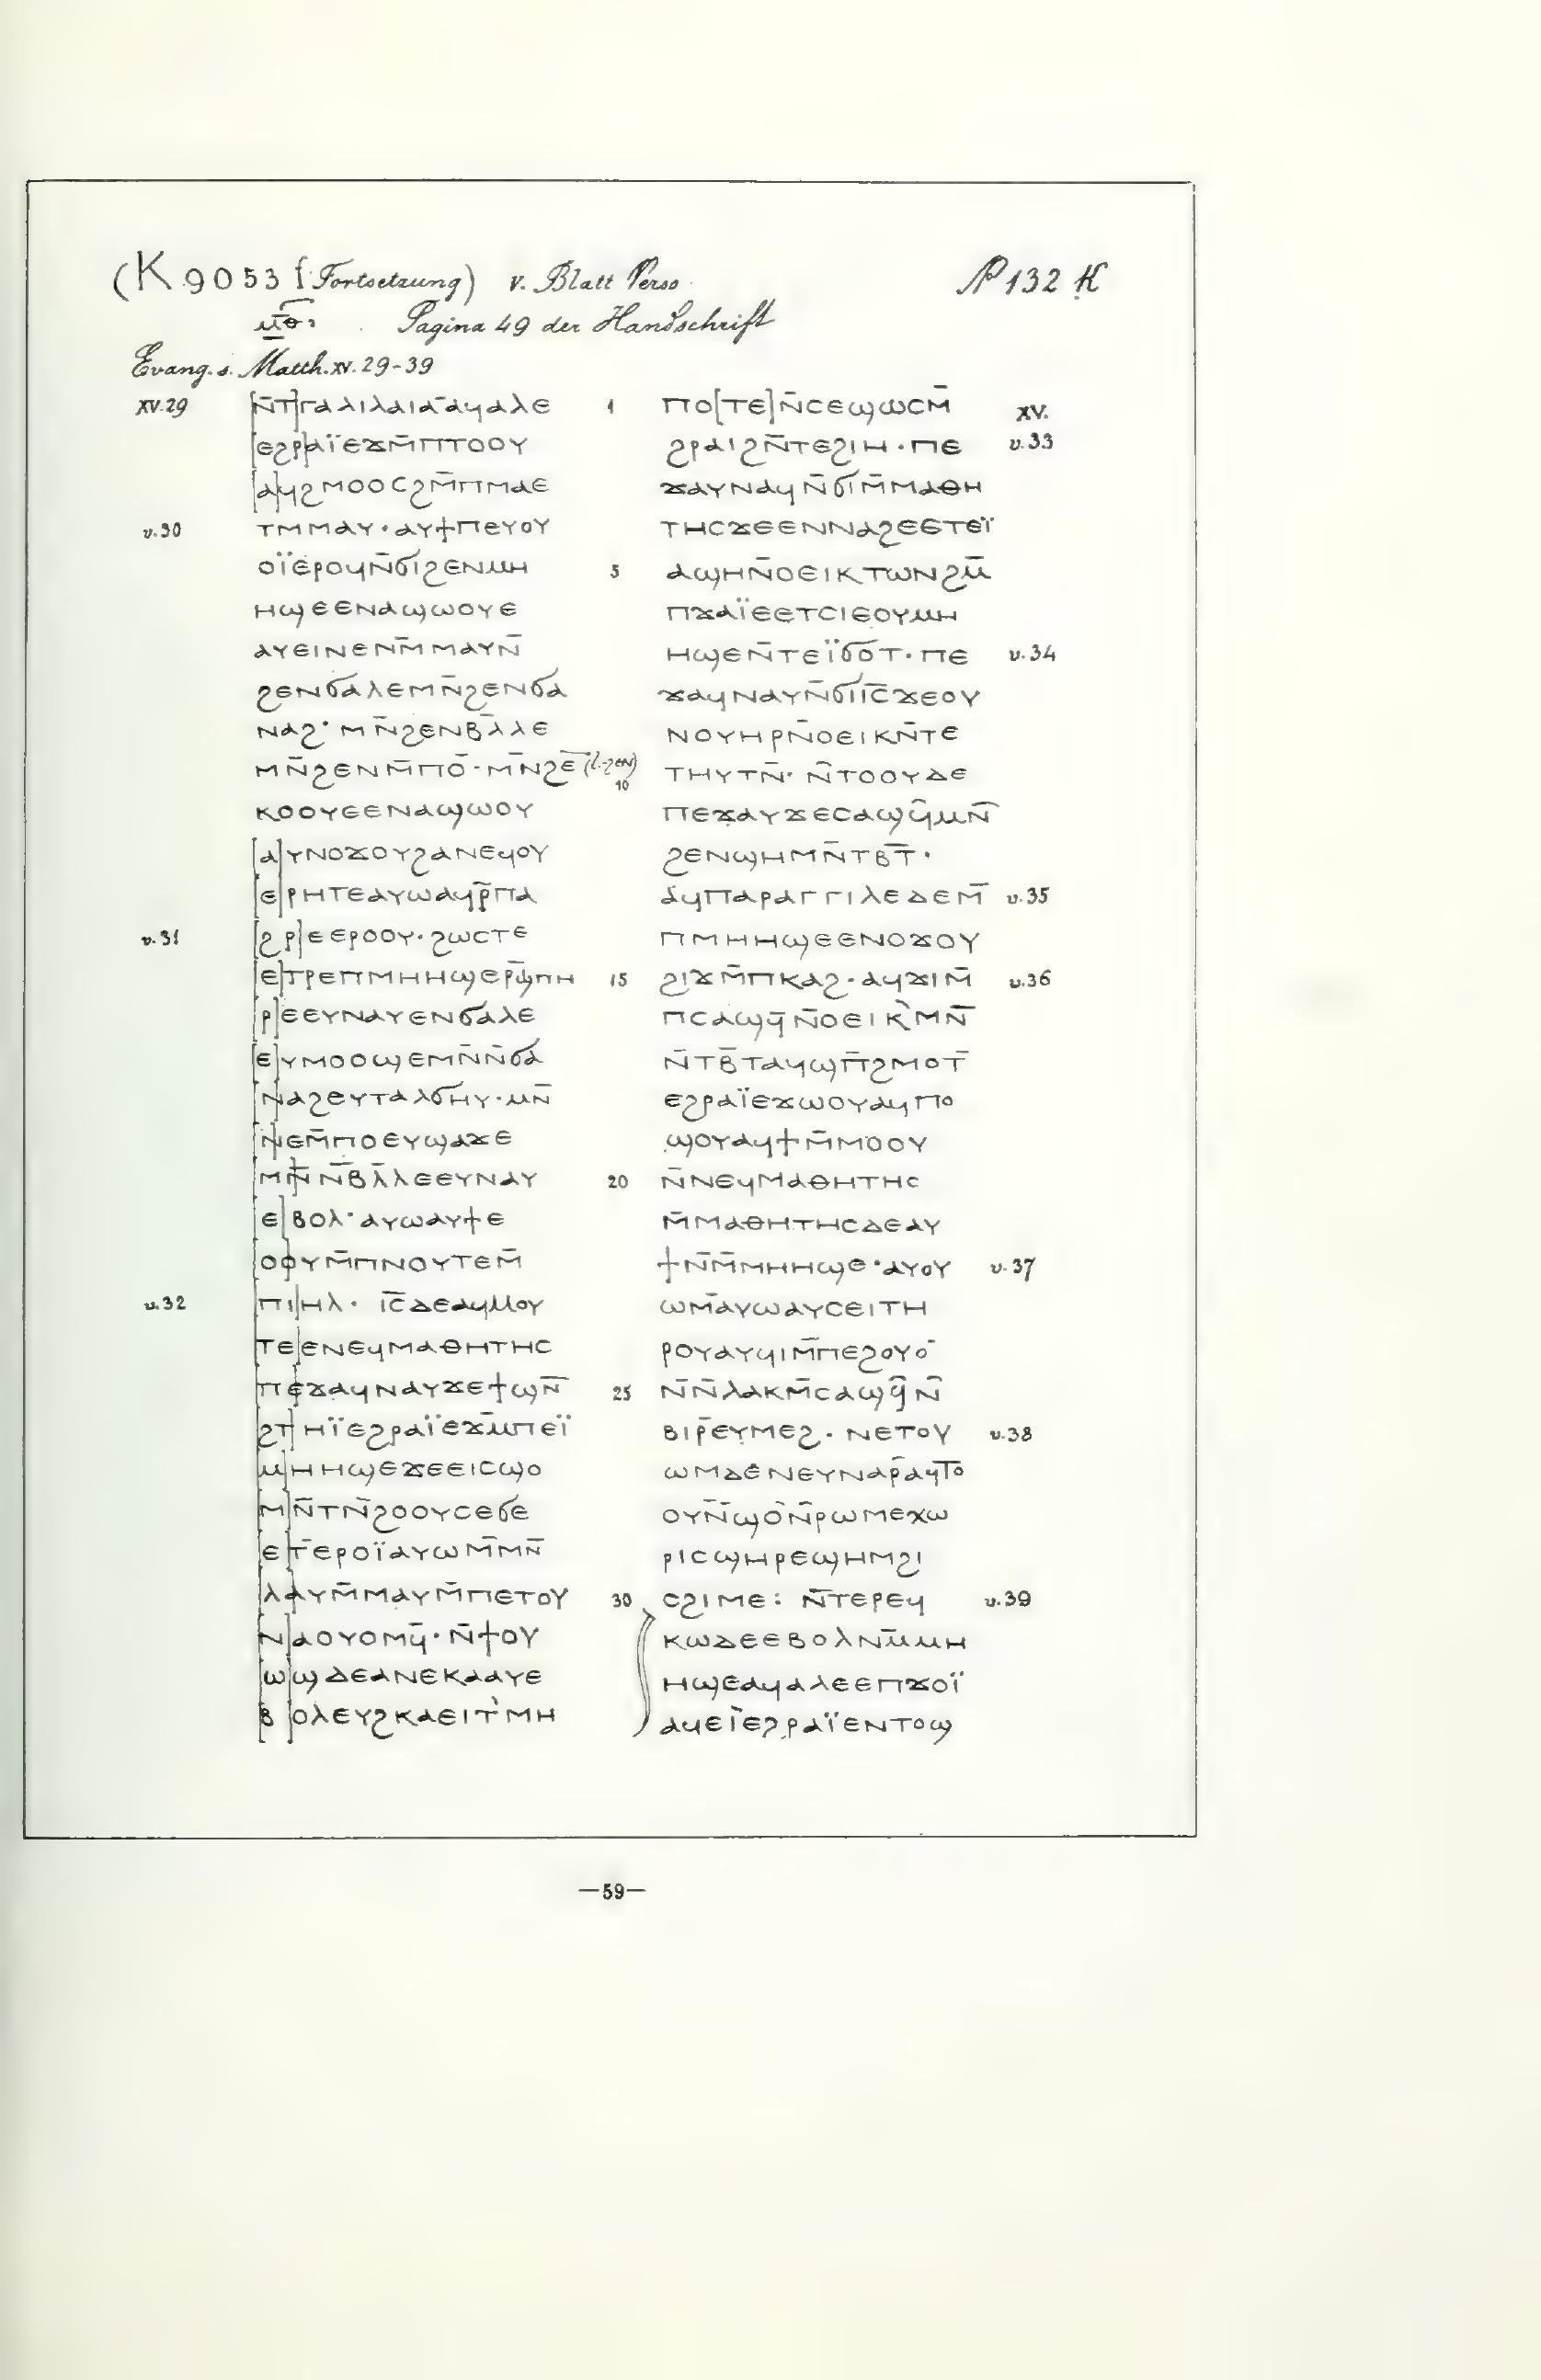 (K 9053 (Fortsetzung) v. Blatt Verso
№ 132 K
ⲙ̅ⲑ̅: Pagina 49 der Handschrift
Evang. s. Matth. XV. 29-39
XV.29 [ⲛ̅ⲧ]ⲅⲁⲗⲓⲗⲁⲓⲁ ̄ⲁϥⲁⲗⲉ 1
[ⲉϩⲣ]ⲁⲓ̈ⲉϫⲙ̅ⲡⲧⲟⲟⲩ
[ⲁ]ϥϩⲙⲟⲟⲥϩⲙ̅ⲡⲙⲁⲉ
v.30 ⲧⲙⲙⲁⲩ·ⲁⲩϯⲡⲉⲩⲟⲩ
ⲟⲓ̈ⲉⲣⲟϥⲛ̅ϭⲓϩⲉⲛⲙⲏ 5
ⲏϣⲉⲉⲛⲁϣⲱⲟⲩⲉ
ⲁⲩⲉⲓⲛⲉⲛⲙ̅ⲙⲁⲩⲛ̅
ϩⲉⲛϭⲁⲗⲉⲙⲛ̅ϩⲉⲛϭⲁ
ⲛⲁϩ·ⲙⲛ̅ϩⲉⲛⲃⲗ̅ⲗⲉ
ⲙⲛ̅ϩⲉⲛⲙ̅ⲡⲟ̄·ⲙ̅ⲛϩⲉ̅ (l. ϩⲉⲛ) 10
ⲕⲟⲟⲩⲉⲉⲛⲁϣⲱⲟⲩ
[ⲁ]ⲩⲛⲟϫⲟⲩϩⲁⲛⲉϥⲟⲩ
[ⲉ]ⲣⲏⲧⲉⲁⲩⲱⲁϥⲣ̅ⲡⲁ
v.31 [ϩⲣ]ⲉⲉⲣⲟⲟⲩ·ϩⲱⲥⲧⲉ
[ⲉ]ⲧⲣⲉⲡⲙⲏⲏϣⲉⲣϣ̅ⲡⲏ 15
[ⲣ]ⲉⲉⲩⲛⲁⲩⲉⲛϭⲁⲗⲉ
[ⲉ]ⲩⲙⲟⲟϣⲉⲙⲛ̅ⲛ̅ϭⲁ
[ⲛ]ⲁϩⲉⲩⲧⲁⲗϭⲏⲩ·ⲙⲛ̅
[ⲛ]ⲉⲙ̅ⲡⲟⲉⲩϣⲁϫⲉ
[ⲙⲛ̅]ⲛ̅ⲃⲗ̅ⲗⲉⲉⲩⲛⲁⲩ 20
[ⲉ]ⲃⲟⲗ·ⲁⲩⲱⲁⲩϯⲉ
[ⲟⲟ]ⲩⲙ̅ⲡⲛⲟⲩⲧⲉⲙ̅
v.32 [ⲡⲓ]ⲏⲗ· ⲓ̅ⲥ̅ⲇⲉⲁϥⲙⲟⲩ
[ⲧⲉ]ⲉⲛⲉϥⲙⲁⲑⲏⲧⲏⲥ
[ⲡⲉ]ϫⲁϥⲛⲁⲩϫⲉϯϣⲛ̅ 25
[ϩⲧ]ⲏⲓ̈ⲉϩⲣⲁⲓ̈ⲉϫⲙ̅ⲡⲉⲓ̈
[ⲙ]ⲏⲏϣⲉϫⲉⲉⲓⲥϣⲟ
[ⲙ]ⲛ̅ⲧⲛ̅ϩⲟⲟⲩⲥⲉϭⲉ
[ⲉ]ⲧⲉⲣⲟⲓ̈ⲁⲩⲱⲙ̅ⲙⲛ̅
[ⲗⲁ]ⲩⲙ̅ⲙⲁⲩⲙ̅ⲡⲉⲧⲟⲩ 30
[ⲛ]ⲁⲟⲩⲟⲙϥ̅·ⲛ̅ϯⲟⲩ
[ⲱ]ϣⲇⲉⲁⲛⲉⲕⲁⲁⲩⲉ
[ⲃ]ⲟⲗⲉⲩϩⲕⲁⲉⲓⲧ̀ⲙⲏ
ⲡⲟ[ⲧⲉ]ⲛ̅ⲥⲉϣⲱⲥⲙ̅ XV.
ϩⲣⲁⲓϩⲛ̅ⲧⲉϩⲓⲏ·ⲡⲉ v.33
ϫⲁⲩⲛⲁϥⲛ̅ϭⲓⲙ̅ⲙⲁⲑⲏ
ⲧⲏⲥϫⲉⲉⲛⲛⲁϩⲉⲉⲧⲉⲓ̈
ⲁϣⲏⲛ̅ⲟⲉⲓⲕⲧⲱⲛϩⲙ̅
ⲡϫⲁⲓ̈ⲉⲉⲧⲥⲓⲉⲟⲩⲙⲏ
ⲏϣⲉⲛ̅ⲧⲉⲓ̈ϭⲟⲧ·ⲡⲉ v.34
ϫⲁϥⲛⲁⲩⲛ̅ϭⲓⲓ̅ⲥ̅ϫⲉⲟⲩ
ⲛⲟⲩⲏⲣⲛ̅ⲟⲉⲓⲕⲛ̅ⲧⲉ
ⲧⲏⲩⲧⲛ̅· ⲛ̅ⲧⲟⲟⲩⲇⲉ
ⲡⲉϫⲁⲩϫⲉⲥⲁϣϥ̅ⲙⲛ̅
ϩⲉⲛϣⲏⲙⲛ̅ⲧⲃ̅ⲧ̅·
ⲁϥⲡⲁⲣⲁⲅⲅⲓⲗⲉⲇⲉⲙ̅ v.35
ⲡⲙⲏⲏϣⲉⲉⲛⲟϫⲟⲩ
ϩⲓϫⲙ̅ⲡⲕⲁϩ·ⲁϥϫⲓⲙ̅ v.36
ⲡⲥⲁϣϥ̅ⲛ̅ⲟⲉⲓⲕ̀ⲙⲛ̅
ⲛ̅ⲧⲃ̅ⲧⲁϥϣⲡ̅ϩⲙⲟⲧ̅
ⲉϩⲣⲁⲓ̈ⲉϫⲱⲟⲩⲁϥⲡⲟ
ϣⲟⲩⲁϥϯⲙ̅ⲙⲟⲟⲩ
ⲛ̅ⲛⲉϥⲙⲁⲑⲏⲧⲏⲥ
ⲙ̅ⲙⲁⲑⲏⲧⲏⲥⲇⲉⲁⲩ
ϯⲛ̅ⲙ̅ⲙⲏⲏϣⲉ·ⲁⲩⲟⲩ v.37
ⲱⲙ̄ⲁⲩⲱⲁⲩⲥⲉⲓⲧⲏ
ⲣⲟⲩⲁⲩϥⲓⲙ̅ⲡⲉϩⲟⲩⲟ̄
ⲛ̅ⲛ̅ⲗⲁⲕⲙ̅ⲥⲁϣϥ̅ⲛ̅
ⲃⲓⲣ̅ⲉⲩⲙⲉϩ·ⲛⲉⲧⲟⲩ v.38
ⲱⲙⲇⲉⲛⲉⲩⲛⲁⲣ̅ⲁϥⲧ̅ⲟ
ⲟⲩⲛ̅ϣⲟⲛ̅ⲣⲱⲙⲉⲭⲱ
ⲣⲓⲥϣⲏⲣⲉϣⲏⲙϩⲓ
ⲥϩⲓⲙⲉ: ⲛ̅ⲧⲉⲣⲉϥ v.39
ⲕⲱⲇⲉⲉⲃⲟⲗⲛ̅ⲙ̅ⲙⲏ
ⲏϣⲉⲁϥⲁⲗⲉⲉⲡϫⲟⲓ̈
ⲁϥⲉⲓ̀ⲉϩⲣⲁⲓ̈ⲉⲛⲧⲟϣ
—59—